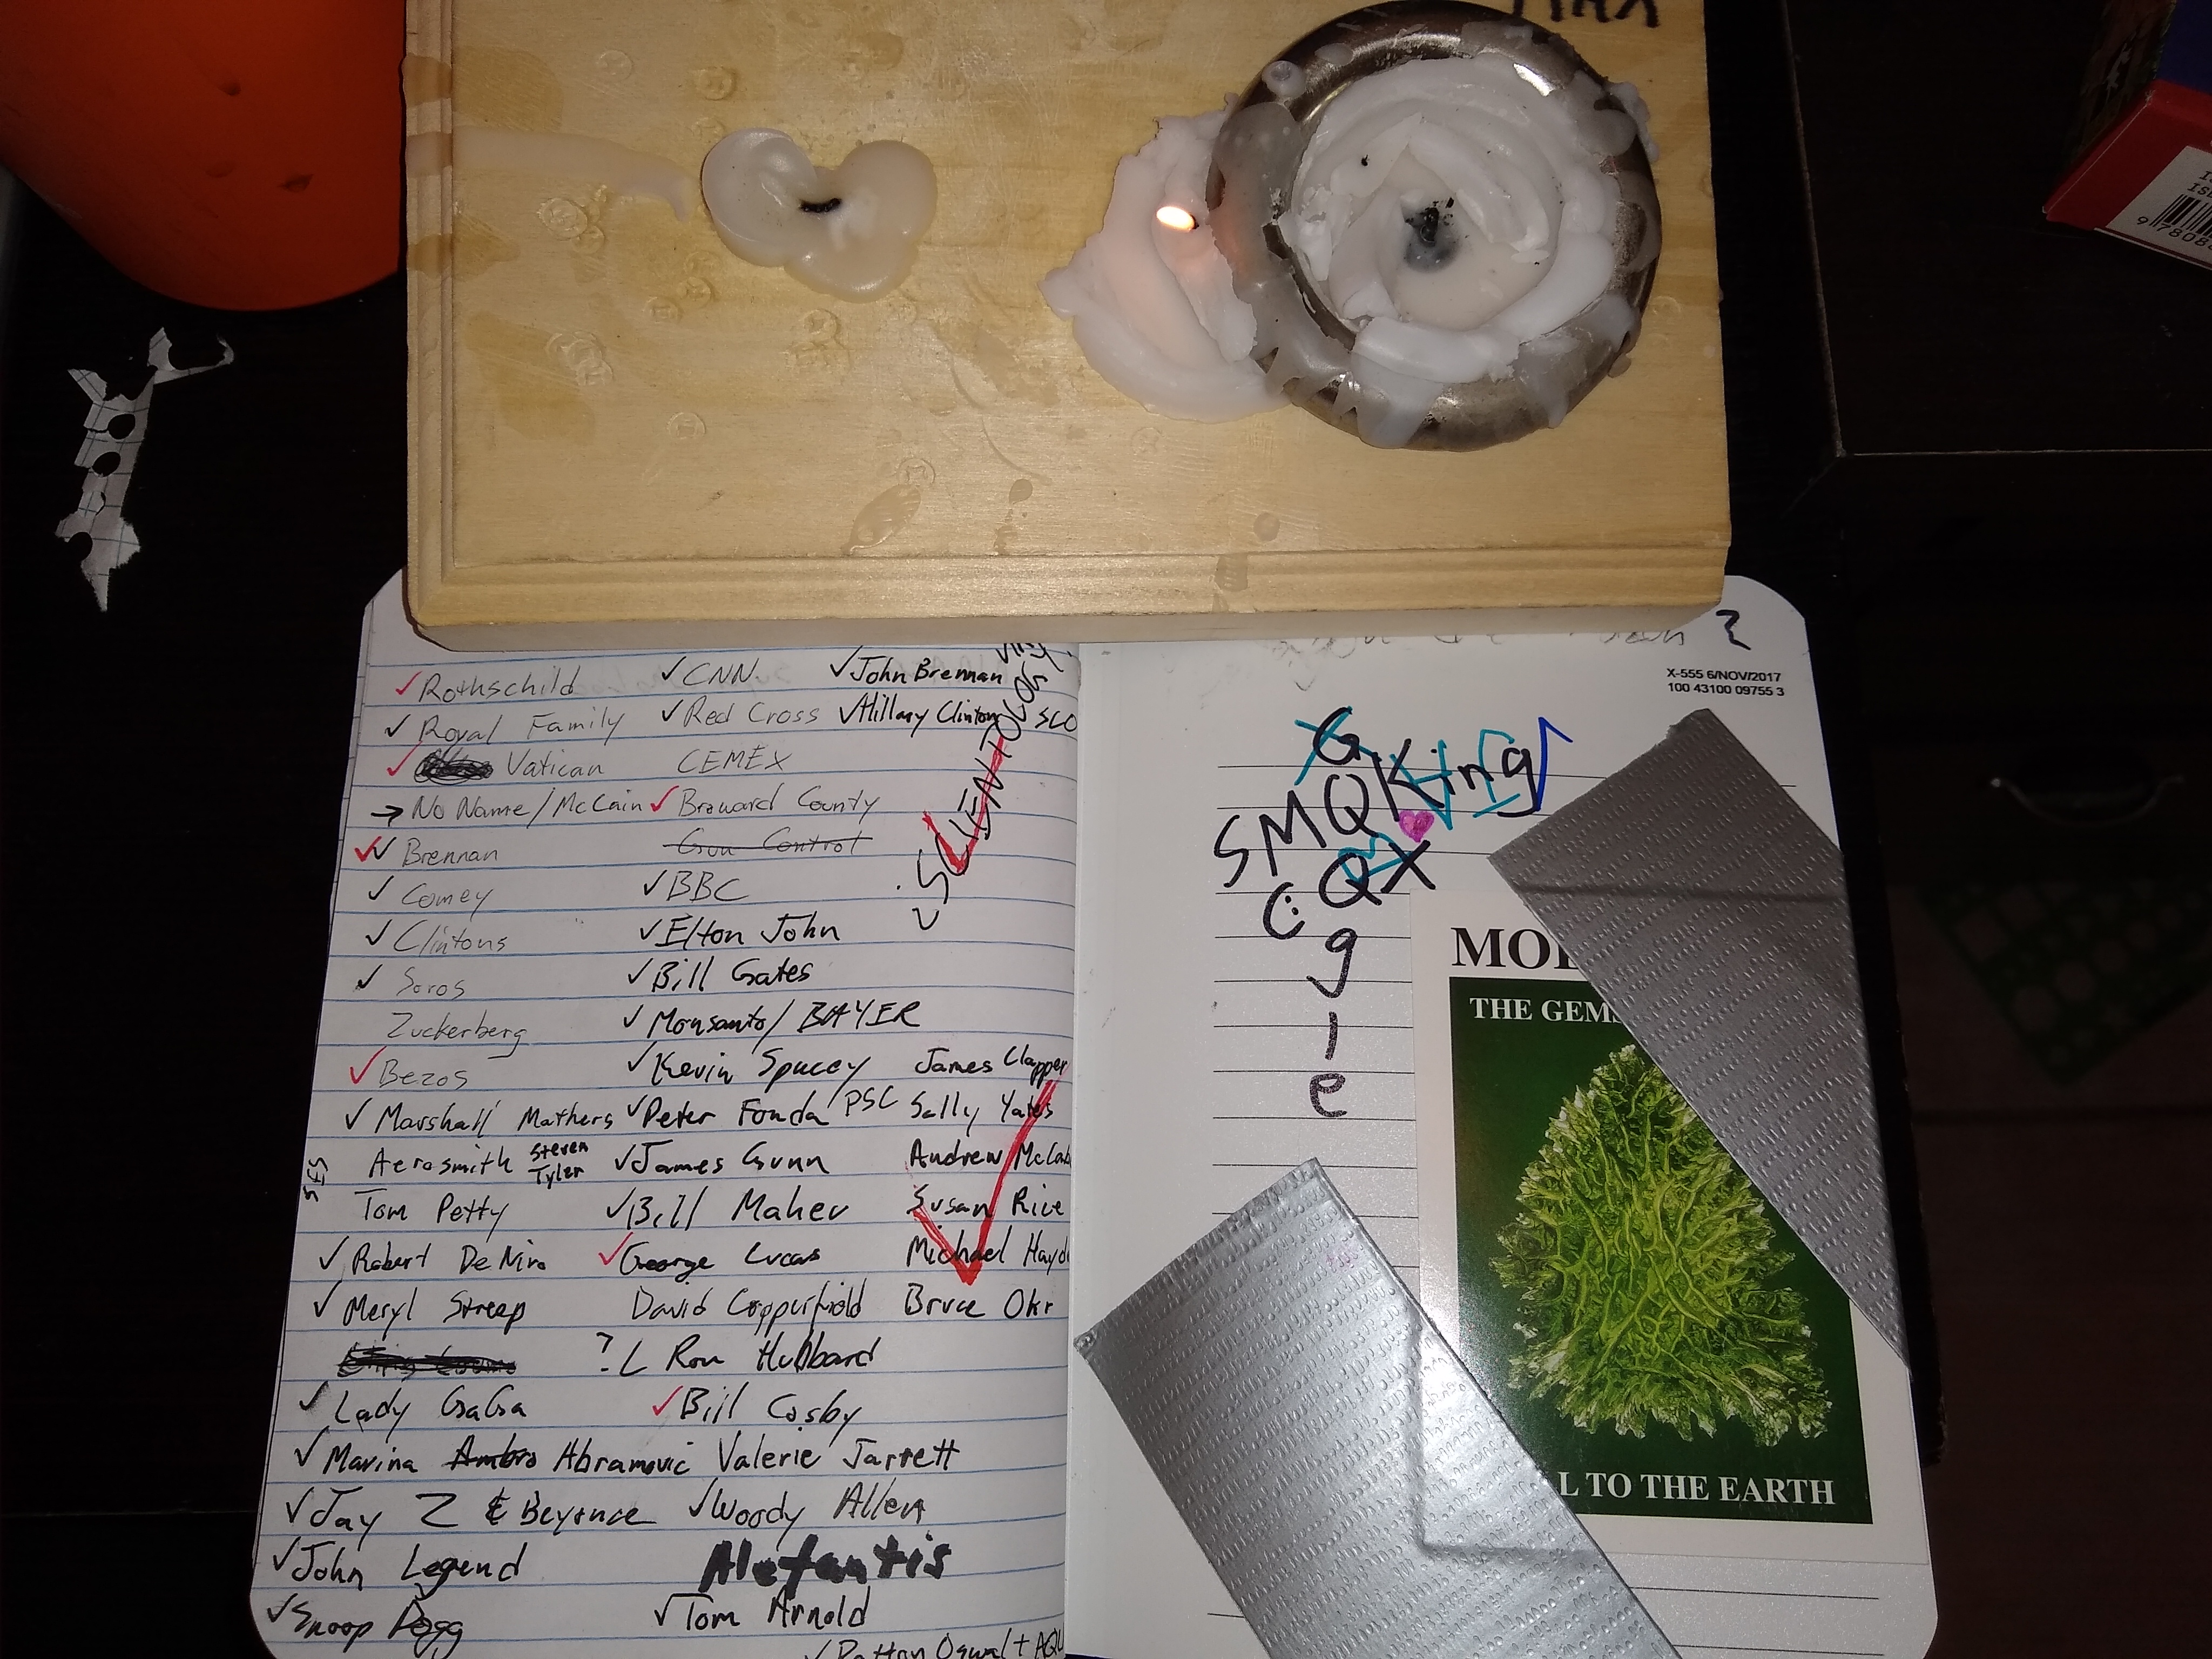 ✓Rothschild
✓Royal Family
✓ Vatican
→ No Name/McCain
✓✓ Brennan
✓ Comey
✓ Clintons
✓ Soros
Zuckerberg
✓ Bezos
✓ Marshall Mathers
Aerosmith Steven Tyler
Tom Petty
✓ Robert De Niro
✓ Meryl Streep
✓ Lady GaGa
✓ Marina Abramovic
✓ Jay Z & Beyonce
✓ John Legend
✓ Snoop Dogg
✓CNN
✓Red Cross
CEMEX
✓ Broward County
Gun Control
✓BBC
✓Elton John
✓Bill Gates
✓ Monsanto/ BAYER
✓Kevin Spacey
✓Peter Fonda PSC
✓James Gunn
✓Bill Maher
✓George Lucas
David Copperfield
? L Ron Hubbard
✓Bill Cosby
Valerie Jarrett
✓Woody Allen
Alefantis
✓Tom Arnold
✓John Brennan
✓Hillary Clinton
✓ SCIENTOLOGY
James Clapper
Sally Yates
Andrew
Susan Rice
Michael
Bruce Ohr
X-555 6/NOV/2017
100 43100 09755 3
G
SMQKing
QX
g
l
e
THE
L TO THE EARTH